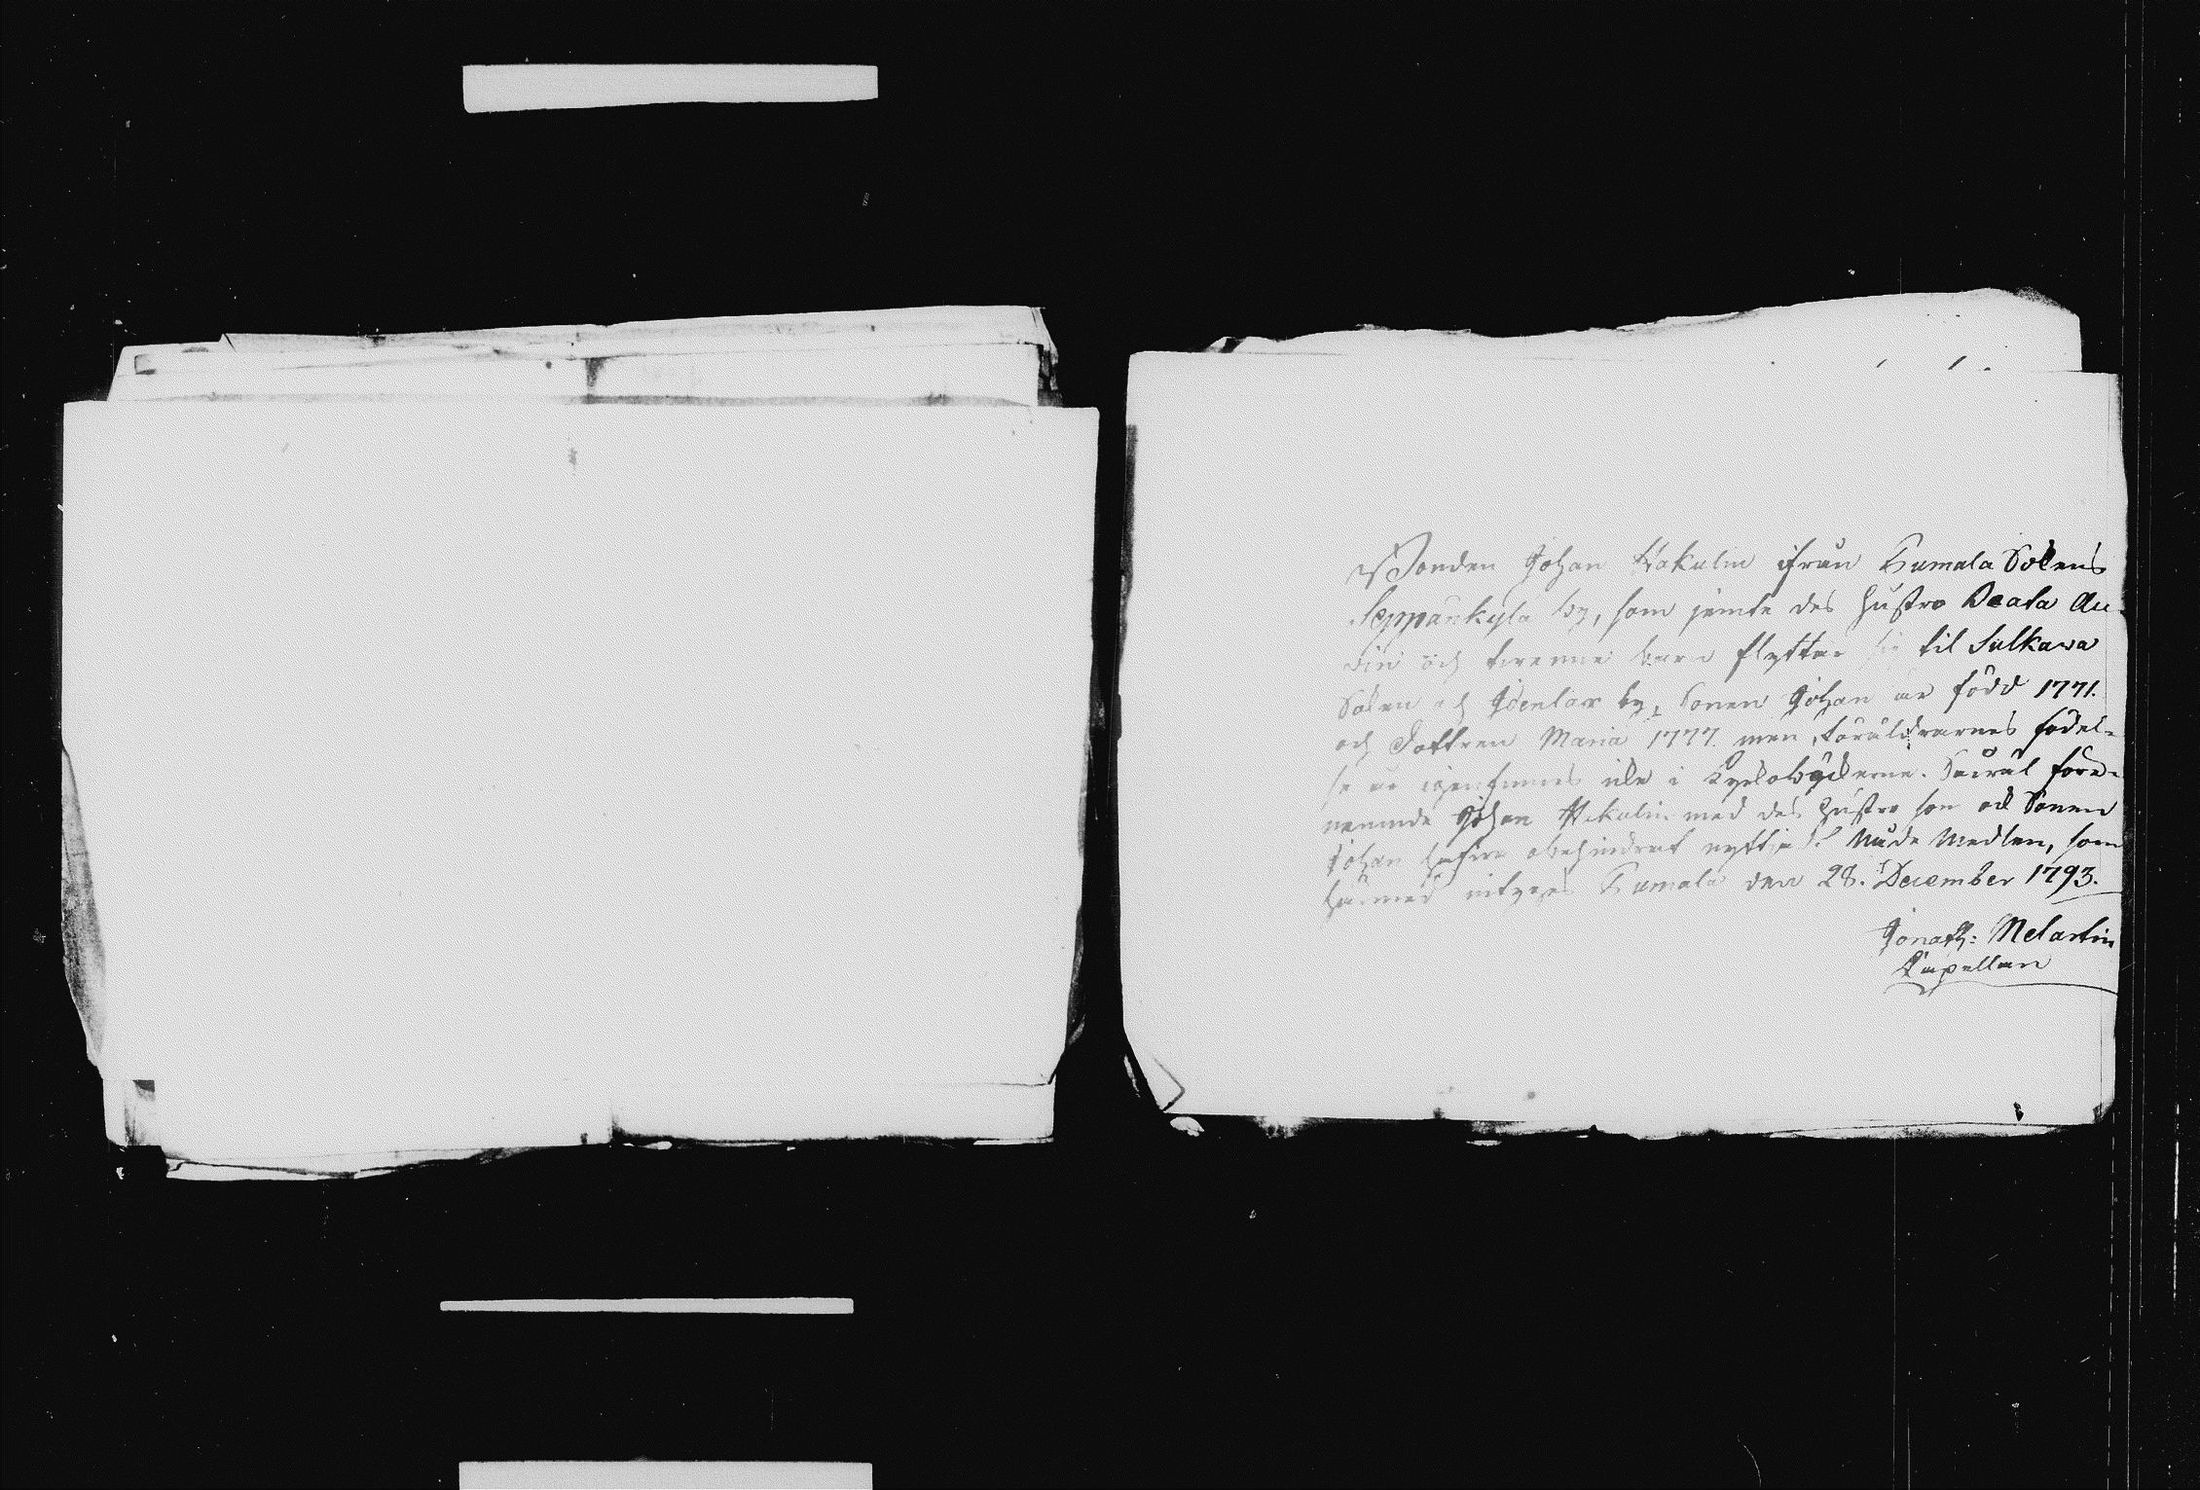 Bonden Johan Hakulin ifrån Sumala Sokens
Seppänkylä by, som jämte des hustro Beata Au-
vin och tvenne barn flyttar sig til Sulkava
Soken och Ioenlax by, Sonen Johan är född 1771.
och Dottren Maria 1777. men föräldrarnes födel-
se år igenfinnes icke i Kyrckoböckerna. före-
nemnde Johan Hakulin med des hustro som ock Sonen
Johan hafva obehindrat nyttja Nåde Medlen, som
härmed intygas Sumala den 28. December 1793.
Jonath: Melartin
Capellan